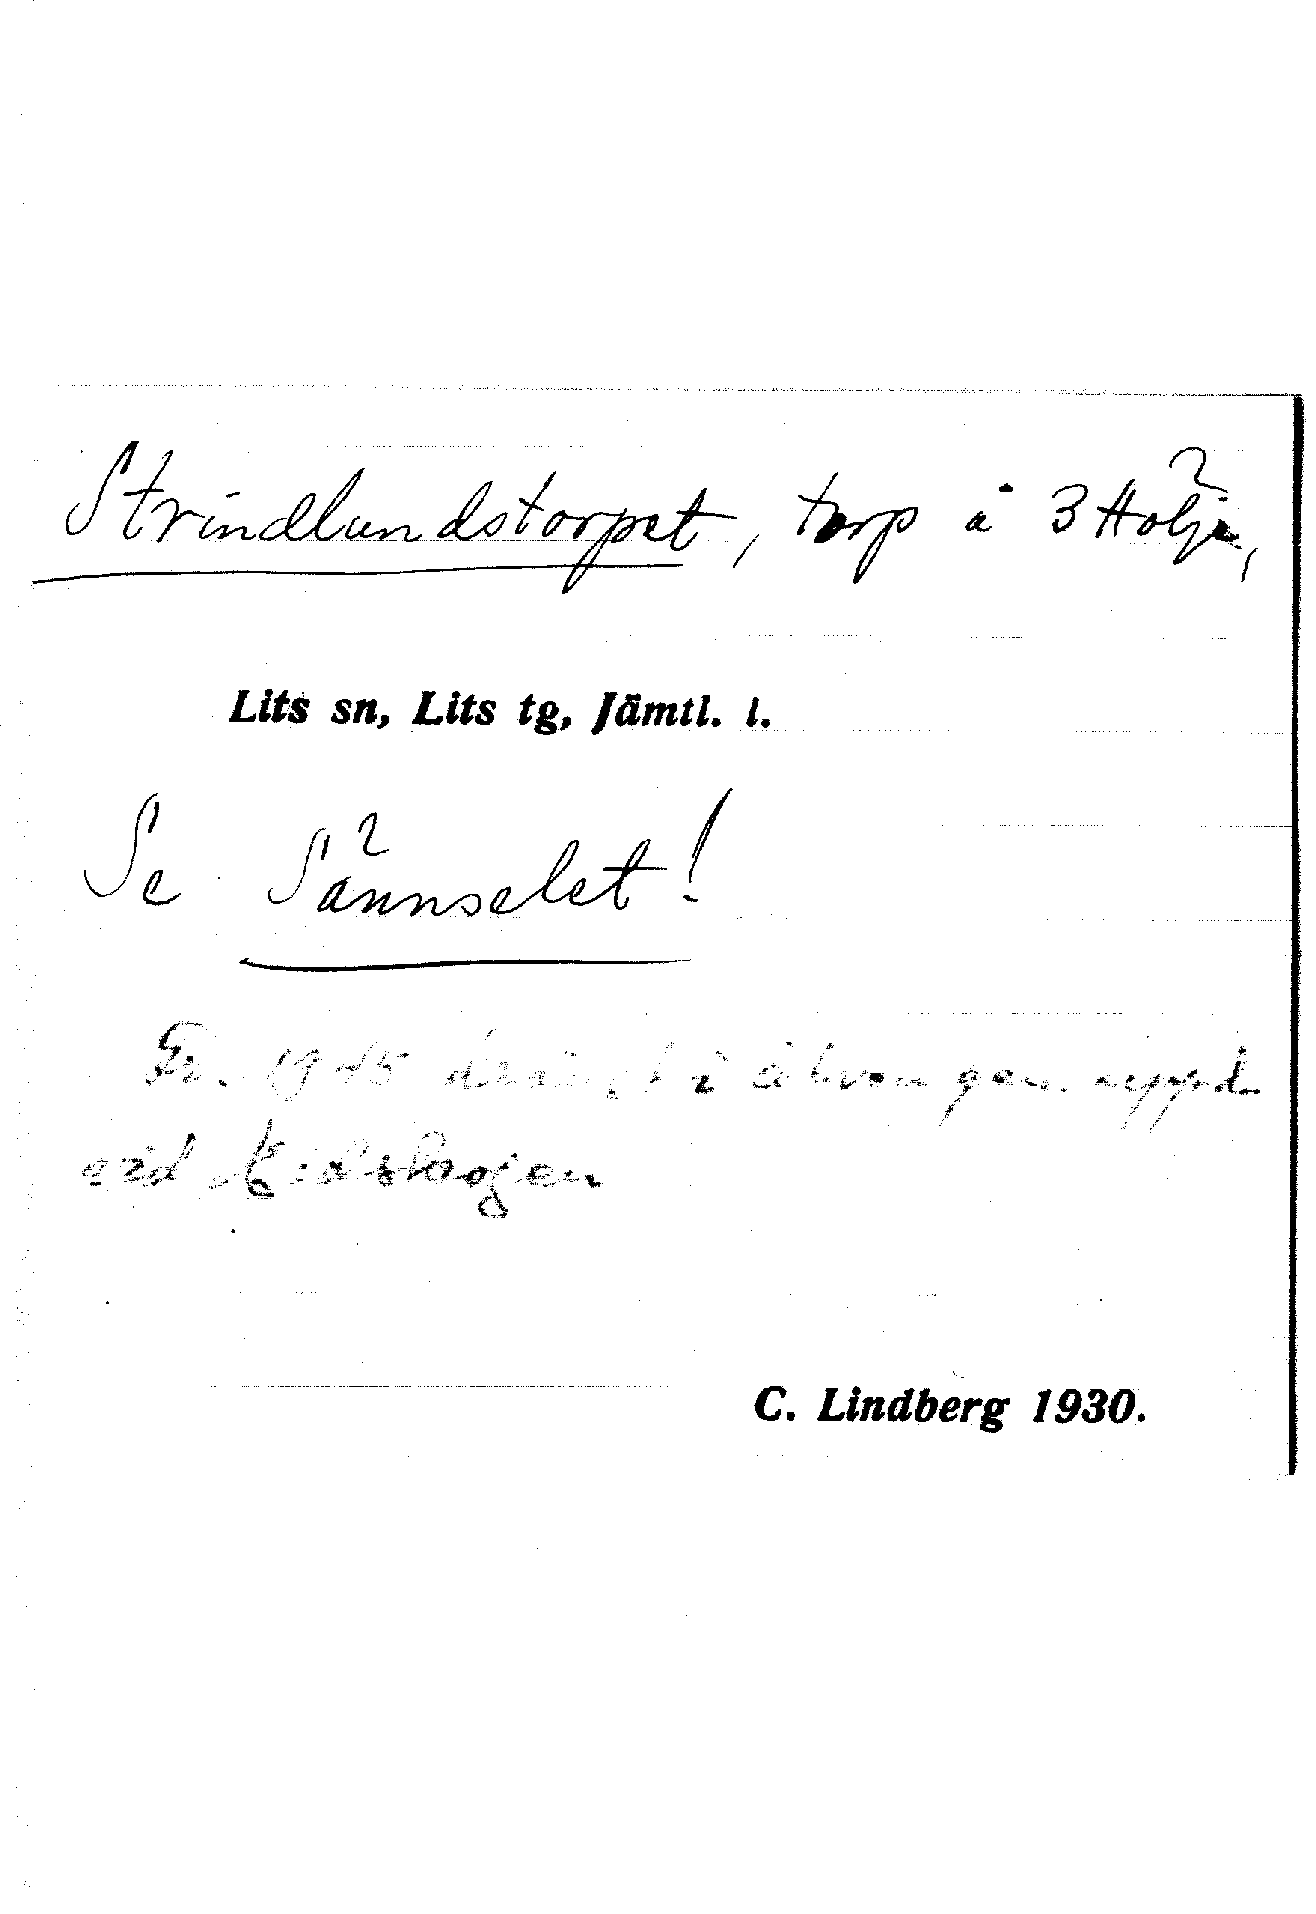 Strindlundstorpet, torp å 3 Hölje,
Lits sn, Lits tg, Jämtl. l.
Se Sännselet!
Fr. 1945 i älven gen. uppd.
vid Midskogen
C. Lindberg 1930.